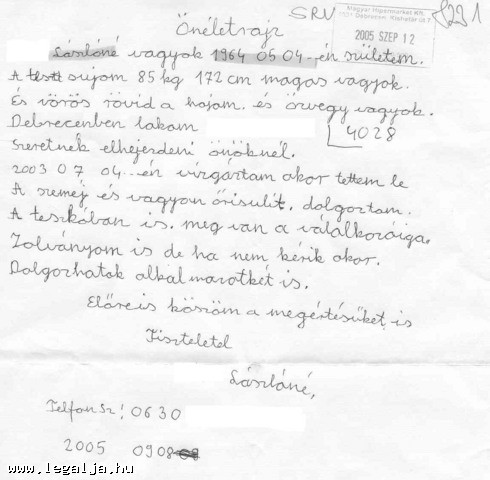 Önéletrajz
SRU
Magyar Hipermarket Kft.
2005 SZEP 12
Lászlóné vagyok 1964 05 04..én születem.
A testt sujom 85 kg 172 cm magas vagyok.
És vörös rövid a hajam. és özvegy vagyok.
Debrecenben lakam 4028
Szeretnék elhejezdeni önöknél.
2003 07 04..én vizgaztam akor tettem le
A szemej és vagyon őrisulit. dolgoztam.
A teszkóban is. meg van a válalkozóiga.
Zolványom is de ha nem kérik akor.
Dolgozhatok alkalmazotként is.
Előre is köszöm a megértésüket is
Tisztelettel
Lászlóné,
Telfon sz! 06 30
2005 09 08
www.legalja.hu